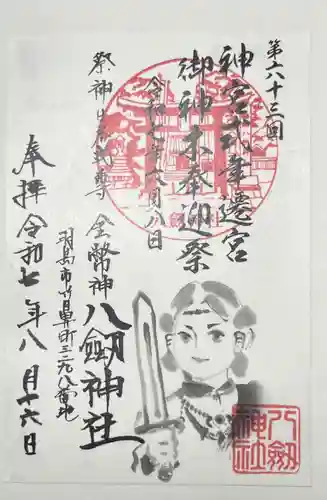 第六十三回
神宮式年遷宮
御神木奉迎祭
令和七年六月八日
祭神 日本武尊 金幣神
八劔神社
羽島市竹鼻町三二九八番地
奉拝 令和七年八月十六日
八劔神社